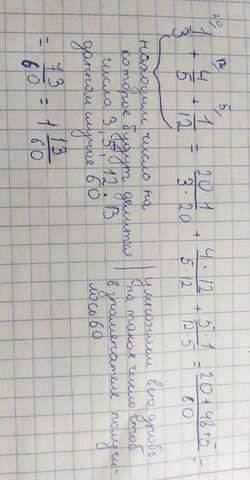 20 12 5
1/3 + 4/5 + 1/12 = 20·1/3·20 + 4·12/5·12 + 5·1/12·5 = 20+48+5/60 =
находим число на
которое будут делится
числа 3, 5, 12. В
данном случае 60
умножаем всю дробь
на такое число чтоб
в знаменателе получи-
лось 60
= 73/60 = 1 13/60